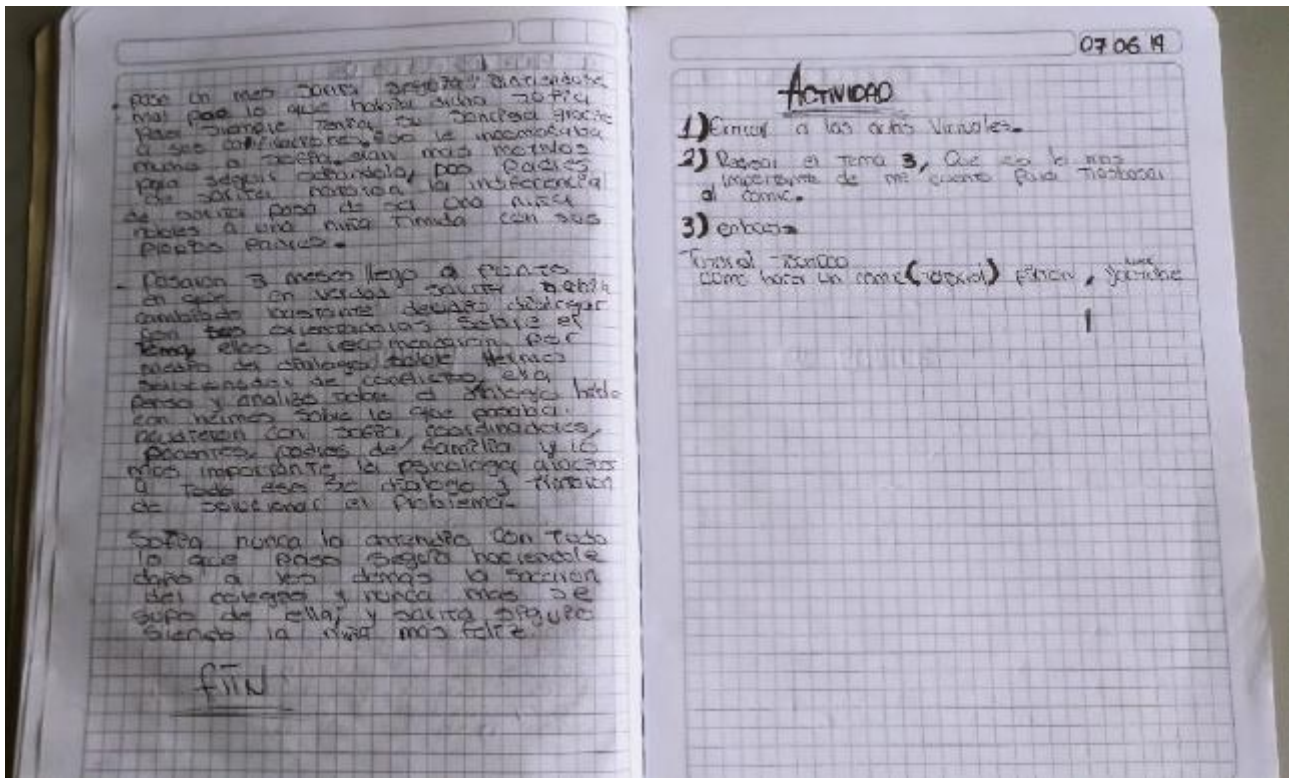 paso un mes Sarita seguía sintiendose
mal por lo que había dicho Sofía
pero siempre tenía su sonrisa gracias
a sus calificaciones. eso le incomodaba
mucho a Sofía. eran mas motivos
para seguir odiandola, pos padres
de Sarita notaron la
de Sarita paso de ser una niña
a una niña timida con sus
propios padres.
Pasaron 3 meses llego a punto
en que en verdad Sarita había
cambiado bastante decidio dialogar
con sus orientadoras sobre el
tema, ellos le recomendaron por
medio del dialogo
de conflictos, ella
penso y analizo sobre el dialogo hablo
con sobre lo que pasaba.
con Sofía, coordinadores,
docentes, padres de familia y lo
mas importante la psicologa gracias
a todo eso se dialogo y trataron
de solucionar el problema.
Sofía nunca lo entendio con todo
lo que paso seguía haciendole
daño a los demas la sacaron
del colegio y nunca mas se
supo de ella, y Sarita siguio
siendo la niña mas feliz.
fiiN
07 06 19
ACTIVIDAD
1) a las artes visuales.
2) el tema 3, Que es lo mas
importante de mi cuento para
al comic.
3)
Tutorial
como hacer un comic (tutorial)